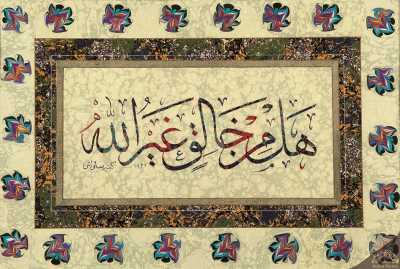 هَلْ مِنْ خَالِقٍ غَيْرُ اللّٰهِ